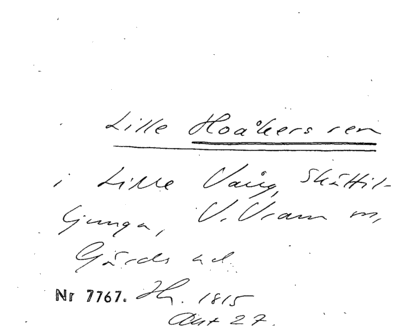 Lille Hoåkers ren
i Lille Vång, Skättil-
ljunga, V. Vram sn,
Gärds hd.
Nr 7767. Hh. 1815
Akt 27.